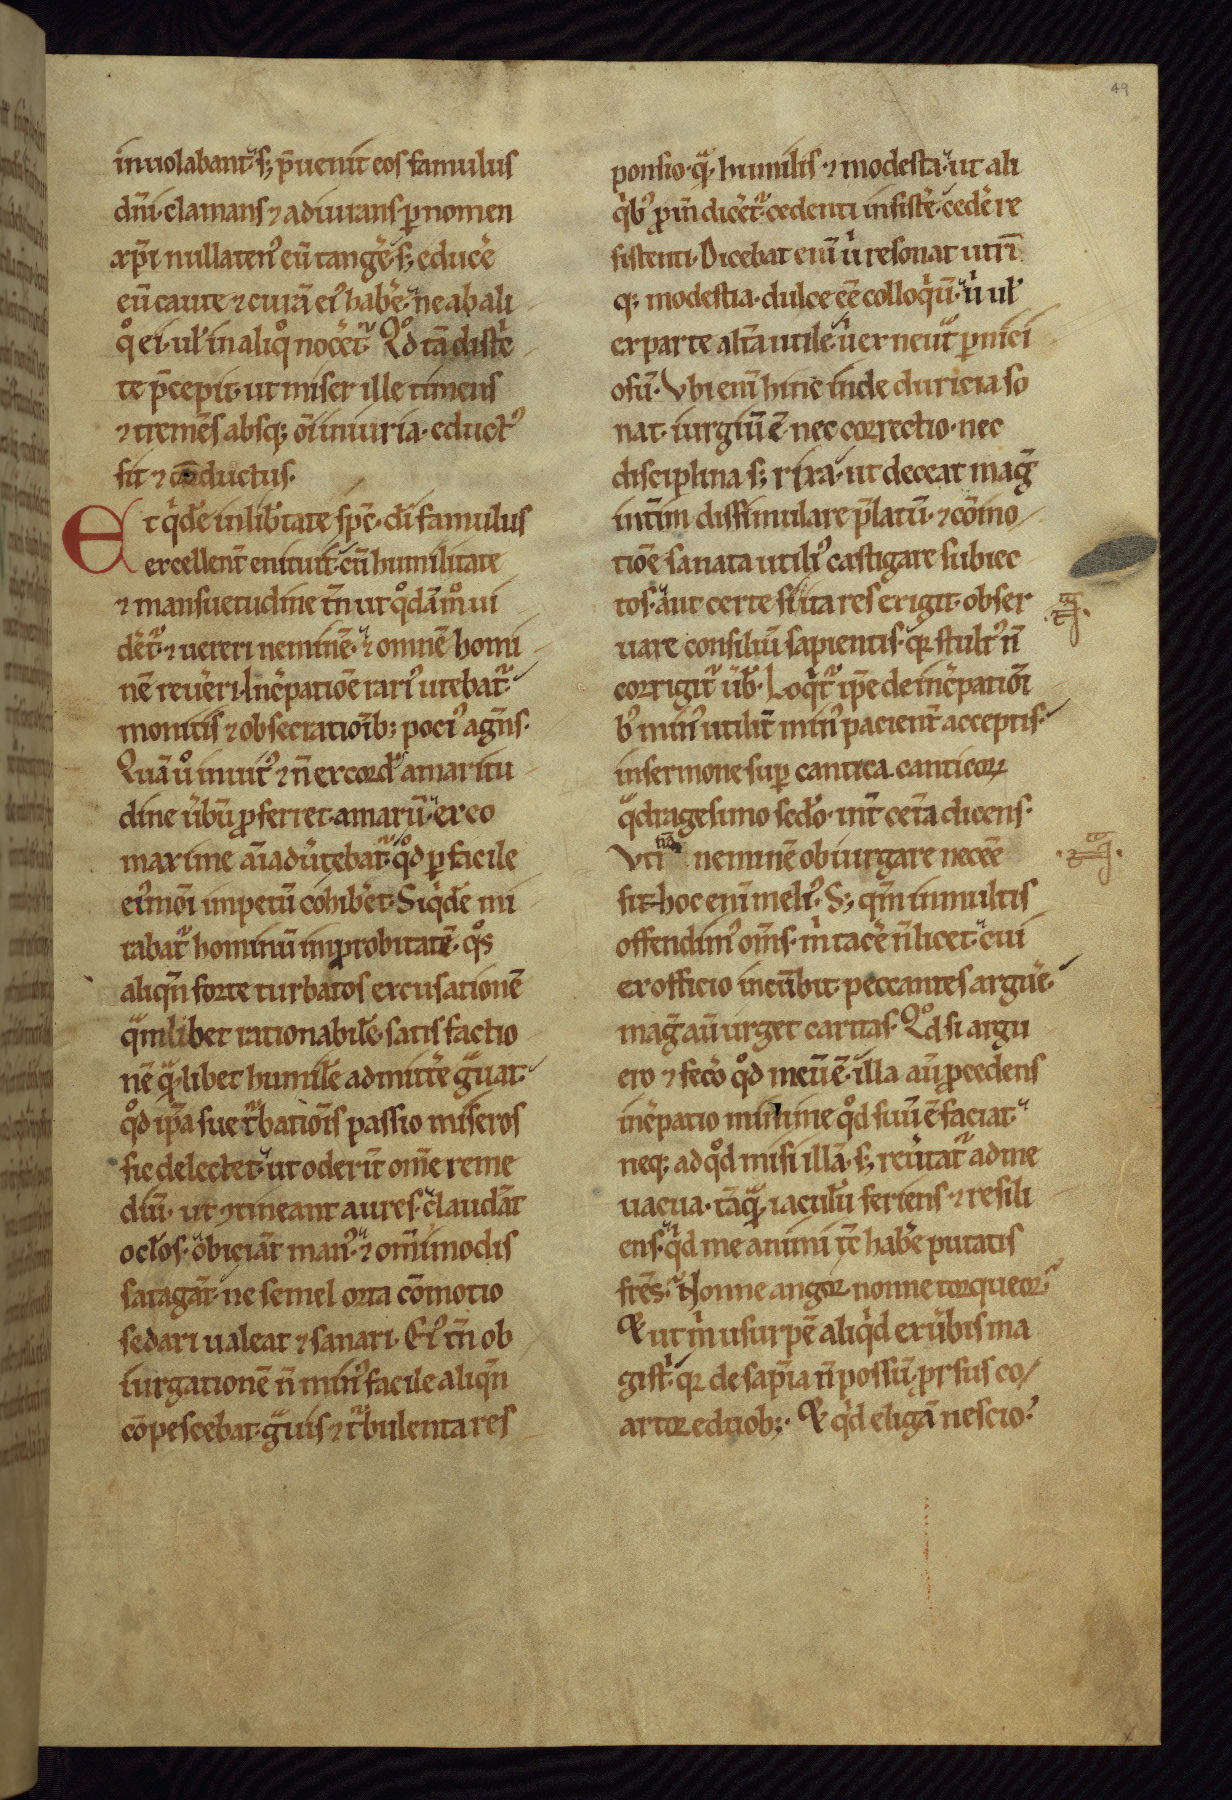 49
inuolabant᷑ s; p̄uenit eos famulus
dn̄i · clamans ⁊ adiurans ꝑ nomen
xp̄i nullaten᷒ eū tangẽ · s; educẽ
eū caute ⁊ curā ei᷒ habẽ · ne ab ali
qͦ ei · ul̓ in aliqͦ nocẽt᷑ Qd̓ tā diste
te p̄cepit · ut miser ille timens
⁊ tremēs absq; oī iniuria · educt᷒
sit ⁊ cōductus ·
Et qͥdē in lib̓tate sp̄c · dī famulus
excellent̄ enituit · cū humilitate
⁊ mansuetudine tn̄ ut qͦdā mͦ ui
dẽt᷑ · ⁊ uereri neminē · ⁊ omnē homi
nē reuẽri · Inc̄patiōe rari᷒ utebat᷑
monitis ⁊ obsecratioīb; poci᷒ agn̄s ·
Quā uͦ inuit᷒ ⁊ n̄ ex cord̓ amaritu
dine ūbū ꝓferret · amarū · ex eo
maxime aīaduẽtebat᷑ · qd̓ ꝑ facile
ei᷒modi impetū cohibẽt · Siqͥdē mi
rabat᷑ hominū improbitatē · qͦs
aliqn̄ forte turbatos excusationē
qᵃmlibet rationabilē · satisfactio
nē qᵃlibet humilē admittẽ gᵃuat ·
qͦd ip̄a sue t᷑bationis passio miseros
sic delectet · ut oderit om̄e reme
diū · ut ꝯtineant aures · claudāt
oclos · obiciāt man᷒ · ⁊ omīmodis
satagāt · ne semel orta cōmotio
sedari ualeat ⁊ sanari · Ei᷒ tn̄ ob
iurgationē n̄ min᷒ facile aliqn̄
cōpescebat · gᵃuis ⁊ t᷑bulenta res
ponsio · qᵃ · humilis · ⁊ modesta · ut ali
qͥb᷒ ꝓin̄ dicẽt᷑ cedenti insistẽ · cedẽ re
sistenti · Dicebat enī ūͥ resonat utri
q; modestia · dulce eē colloqͥū · ūͥ ul̓
ex parte altā utile · ūͥ ex neut᷑ · ꝑnici
osū · Vbi enī hinc inde duricia so
nat · iurgiū ē nec correctio · nec
disciplina s; rixa · ut deceat mag̃
int̄im dissimulare p̄latū · ⁊ cōmo
tiōe sanata utili᷒ castigare subiec
tos · aut certe si ita res exigit · obser
uare consiliū sapientis · qꝛ stult᷒ n̄
corrigit᷑ ūb̓ · Loqͥt᷑ ip̄e de inc̄patiōi
b᷒ min᷒ utilit̄ min᷒ pacient̄ acceptis
in sermone suꝑ cantica canticoꝝ
qᵃdragesimo scd̓o · int̄ cet̄a dicens ·
Vtinā neminē obiurgare necēe
sit · hoc enī meli᷒ · S; qm̄ in multis
offendim᷒ om̄s · mͥ tacẽ n̄ licet · cui
ex officio incūbit · peccantes arguẽ ·
mag̃ aū urget caritas · Qd̓ si argu
ero ⁊ fecẽo qͦd meū ē · illa aū p̄cedens
inc̄patio minime qͦd suū ē faciat
neq; ad qͦd misi illā · s; reūtat᷑ ad me
uacua · tāqᵃ iaculū feriens · ⁊ resili
ens · qͥd me animi tc̄ habẽ putatis
fr̄es · Nonne angor nonne torqueor ·
Et ut mͥ usurpē aliqͥd ex ūbis ma
gist̄ · qꝛ de sapīa n̄ possū · ꝓrsus co
artor e duob; · Et qͥd eligā nescio ·